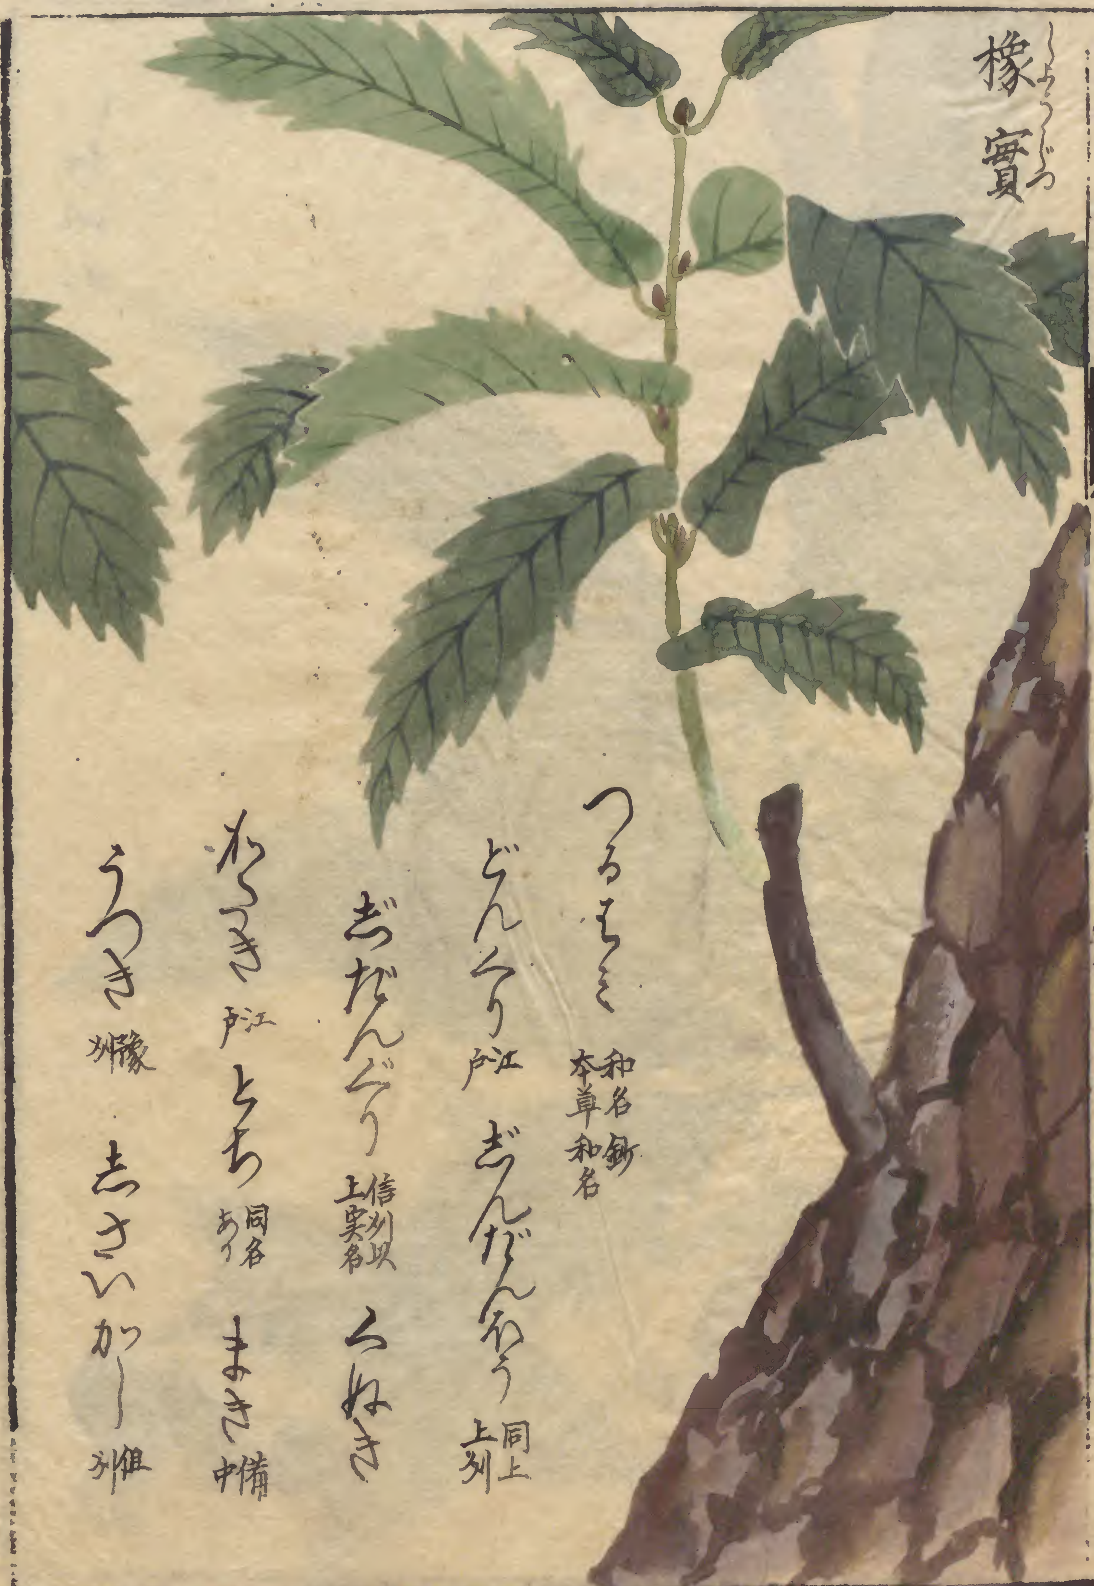 橡實
しようじつ
つるはミ 和名鈔 本草和名
どんくり 江戸 じんだんほう 同上 上州
じだんぐり 信州以上実名 くぬき
江戸 とち 同名あり まき 備中
うつき 豫州 志さいかし 但州